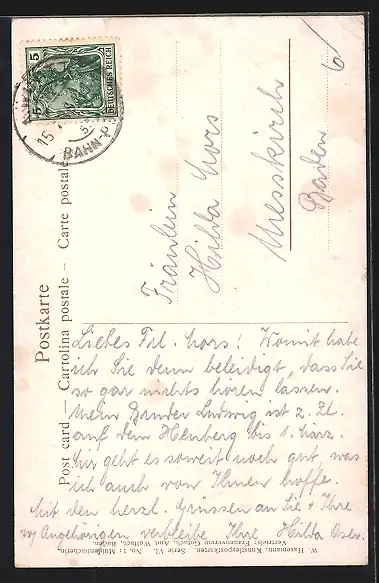 5
DEUTSCHES REICH
15
BAHN-P
Postkarte
Post card — Cartolina postale — Carte postale
Fräulein
Hilda Kors
Messkirch
Baden
Liebes Frl. Kors! Womit habe
ich Sie denn beleidigt, dass Sie
so gar nichts hören lassen.
Mein Bruder Ludwig ist z. Zt.
auf dem Heuberg bis 1. März.
Mir geht es soweit noch gut was
ich auch von Ihnen hoffe.
Mit den herzl. Grüssen an Sie & Ihre
w/ Angehörigen verbleibe Ihre Hilda
W. Hasemann, Künstlerpostkarten. Serie VI. No. 31 Mühlenbacherin.
Vertrieb: Frauenverein Gutach, Amt Wolfach, Baden.